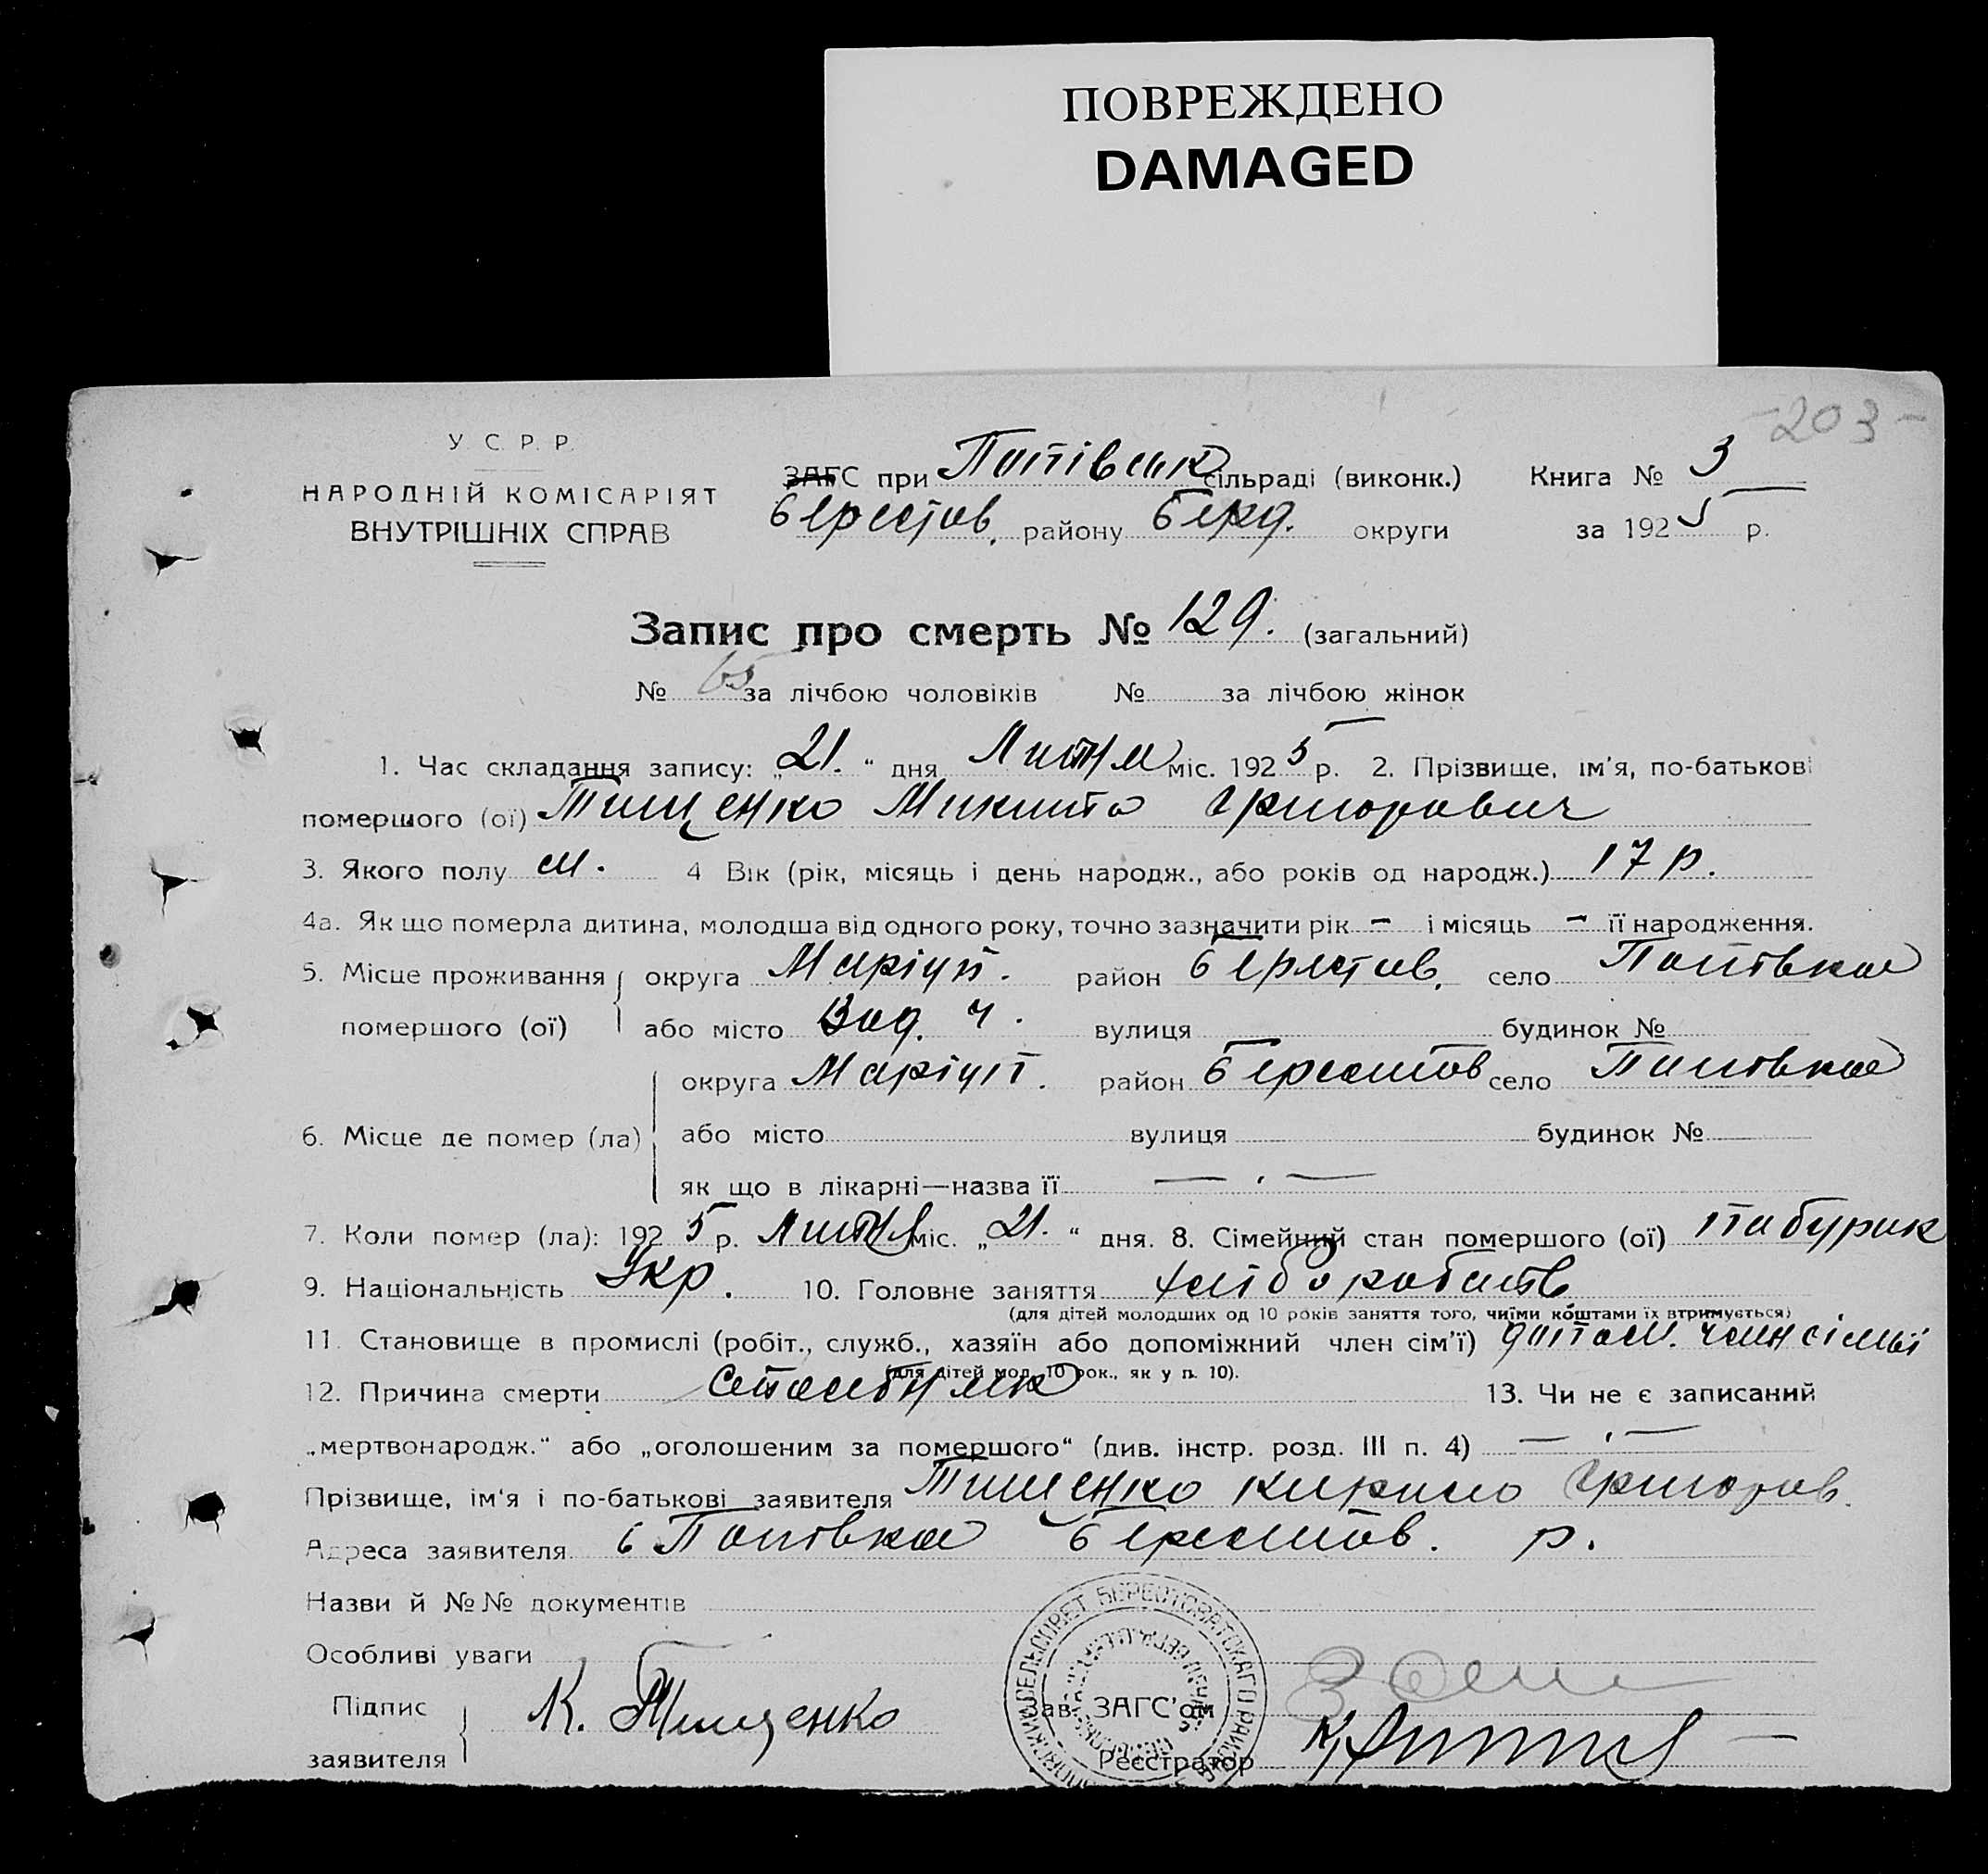 ПОВРЕЖДЕНО
DAMAGED
-203-
У. С. Р. Р.
НАРОДНІЙ КОМІСАРІЯТ
ВНУТРІШНІХ СПРАВ
ЗАГС при Попівськ сільраді (виконк.) Книга № 3
Берестов. району Берд. округи за 1925 р.
Запис про смерть № 129. (загальний)
№ 65 за лічбою чоловіків № за лічбою жінок
1. Час складання запису: „21.“ дня Липня міс. 1925 р. 2. Прізвище, ім'я, по-батькові
помершого (ої) Тищенко Микита Григорович
3. Якого полу м. 4 Вік (рік, місяць і день народж., або років од народж.) 17 р.
4а. Як що померла дитина, молодша від одного року, точно зазначити рік - і місяць - її народження.
5. Місце проживання округа Маріуп. район Берестов. село Попівка
помершого (ої) або місто вулиця будинок №
округа Маріуп. район Берестов село Попівка
6. Місце де помер (ла) або місто вулиця будинок №
як що в лікарні—назва її — . —
7. Коли помер (ла): 1925 р. Липня міс. „21.“ дня. 8. Сімейний стан помершого (ої) Пабурик
9. Національність Укр. 10. Головне заняття хліборобств
(для дітей молодших од 10 років заняття того, чиїми коштами їх втримується)
11. Становище в промислі (робіт., служб., хазяїн або допоміжний член сім'ї) допом. член сімьї
(для дітей мол. 10 рок., як у п. 10).
12. Причина смерти 13. Чи не є записаний
„мертвонародж.“ або „оголошеним за помершого“ (див. інстр. розд. III п. 4) — . —
Прізвище, ім'я і по-батькові заявителя Тищенко Кирило Григоров.
Адреса заявителя с Попівка Берестов. р.
Назви й №№ документів
Особливі уваги
Підпис заявителя К. Тищенко
Зав. ЗАГС'ом
Реєстратор
СЕЛЬСОВЕТ БЕРЕСТОВАТСКАГО